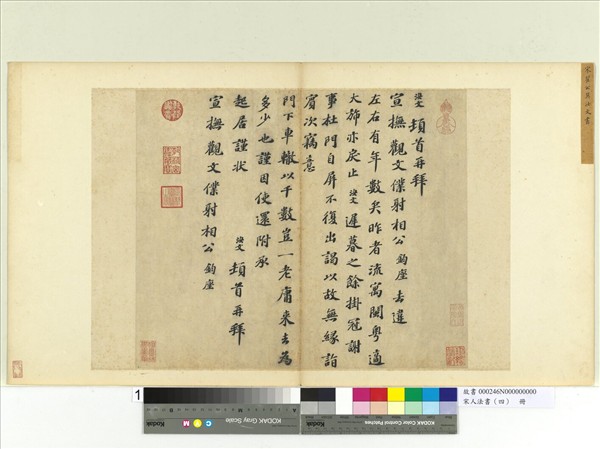 汝文 頓首再拜
宣撫觀文僕射相公 鈞座 去違
左右有年數矣昨者流寓閩粵適
大旆亦戾止 汝文 遲暮之餘掛冠謝
事杜門自屏不復出謁以故無緣詣
賓次竊意
門下車轍以千數豈一老庸來去為
多少也謹因使還附承
起居謹狀
汝文 頓首再拜
宣撫觀文僕射相公 鈞座
1
KODAK Gray Scale
KODAK Color Control Patches
故書 000246N000000000
宋人法書（四） 冊